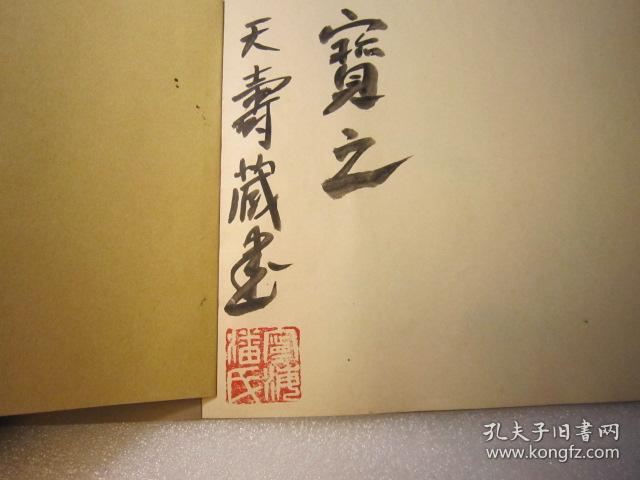 寶之
天壽藏書
寧海潘氏
孔夫子旧書网
www.kongfz.com